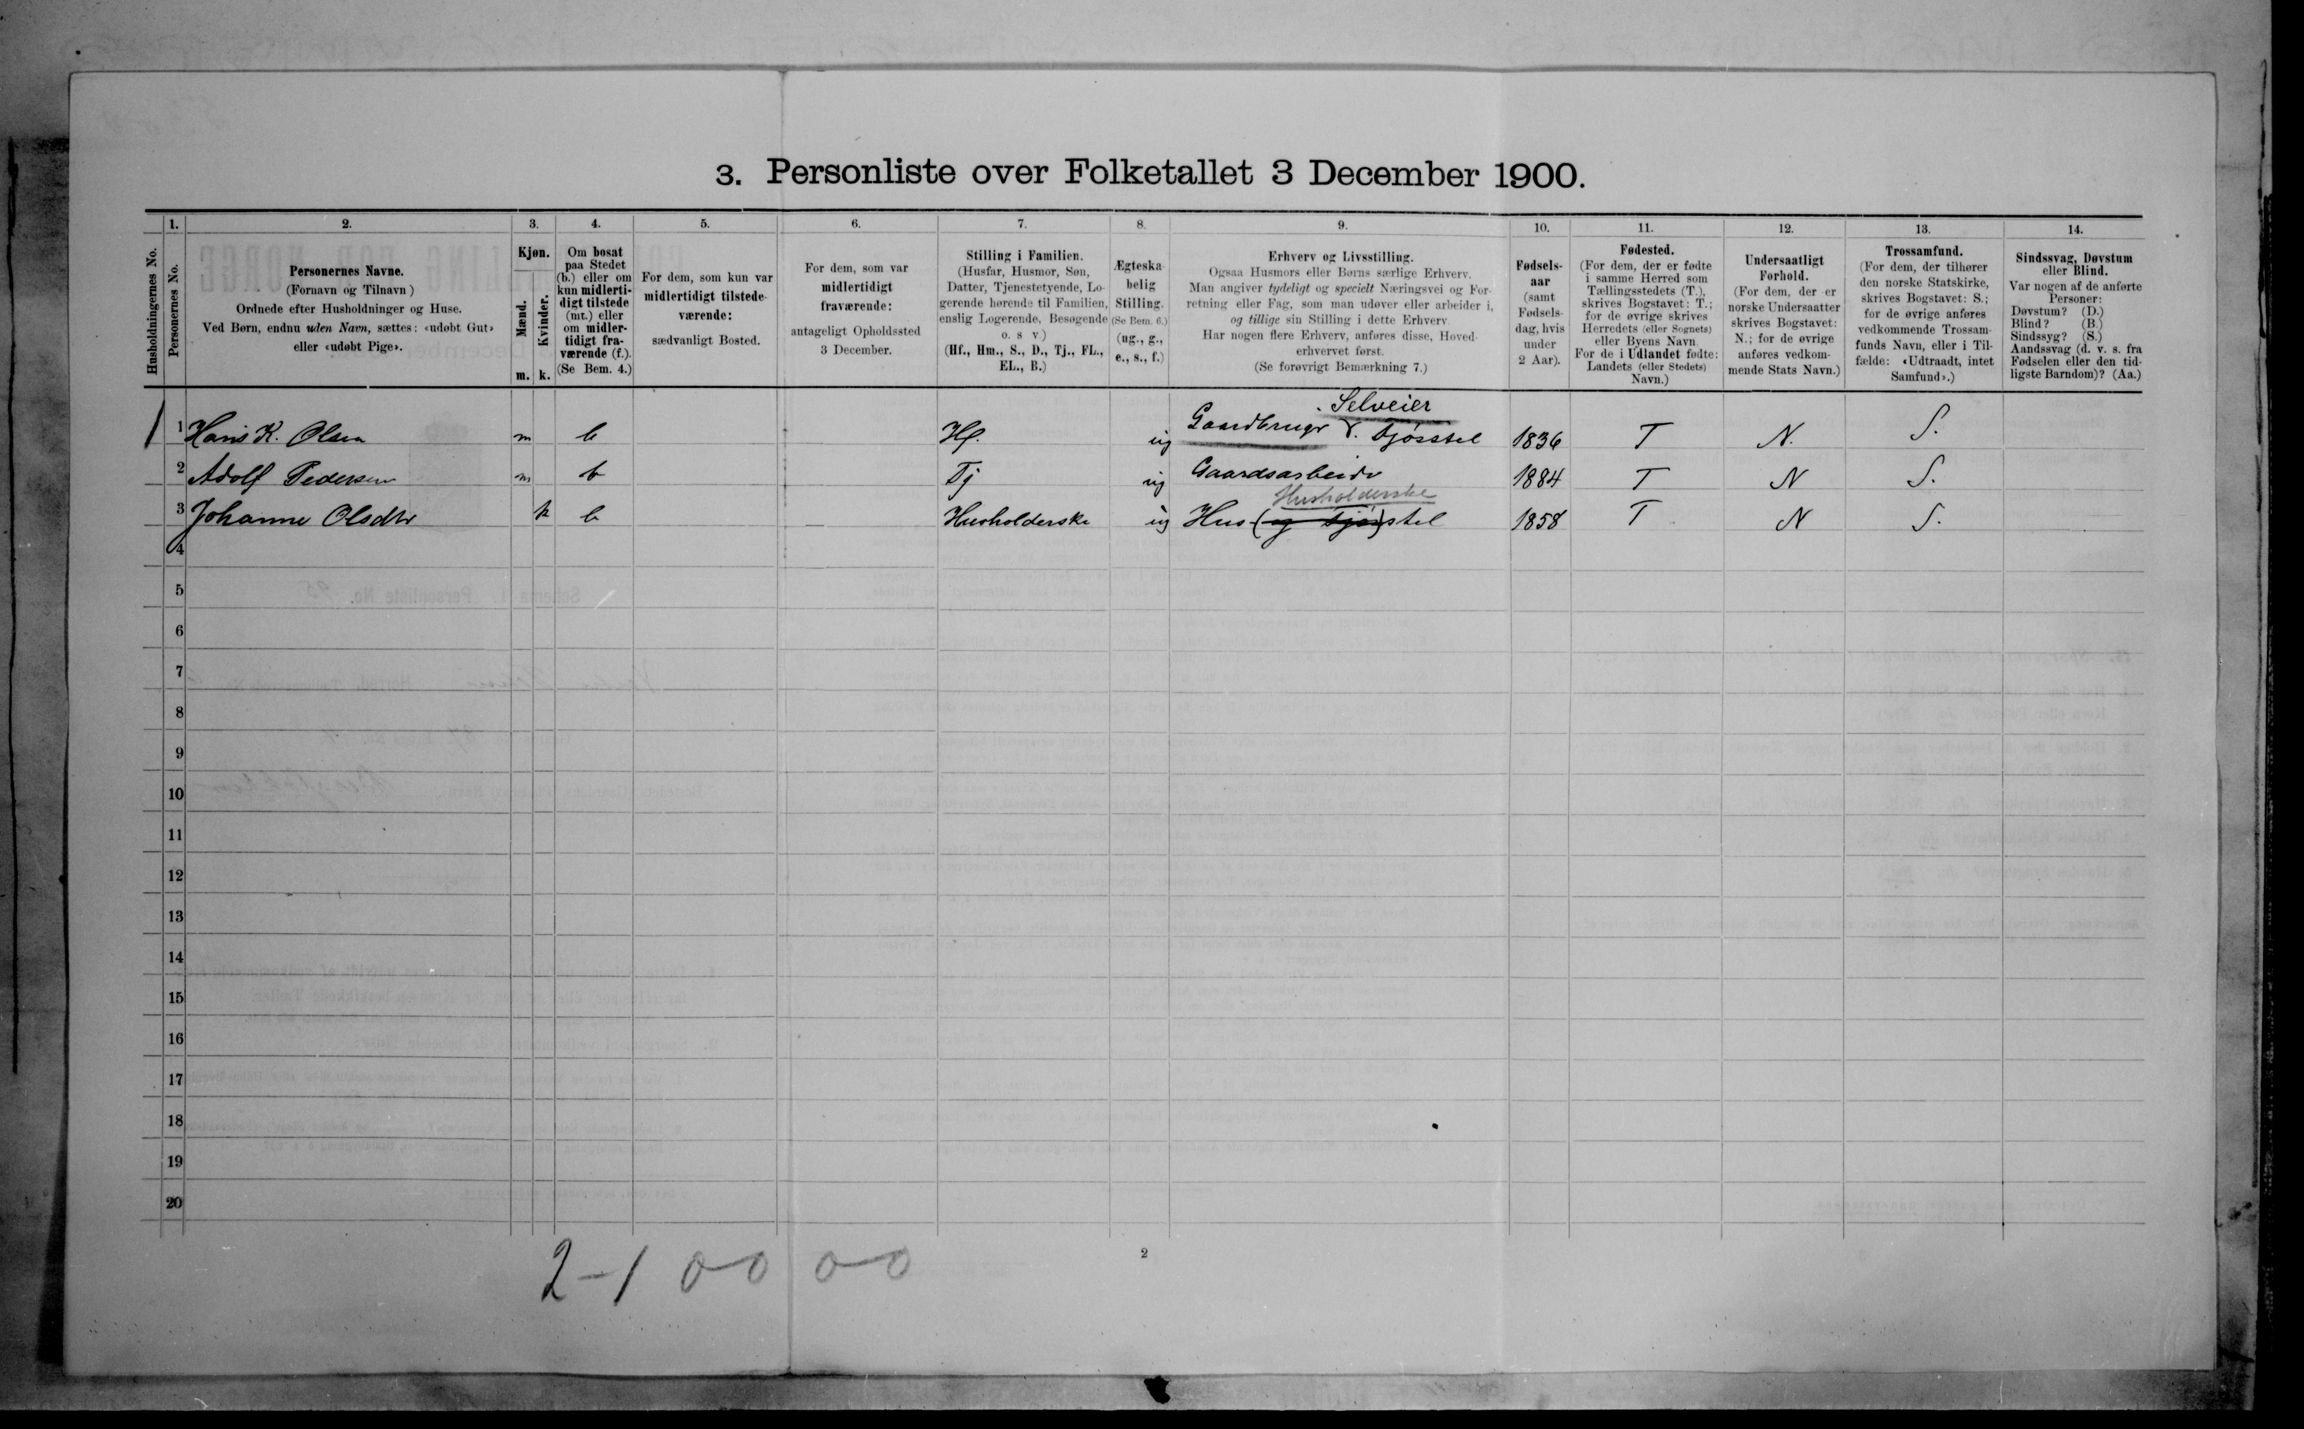 3. Personliste over Folketallet 3 December 1900.
Husholdningernes No.
1.
Personernes No.
2.
Personernes Navne.
(Fornavn og Tilnavn)
Ordnede efter Husholdninger og Huse.
Ved Børn, endnu uden Navn, sættes: «udøbt Gut»
eller «udøbt Pige».
3.
Kjøn.
Mænd.
Kvinder.
m. k.
4.
Om bosat
paa Stedet
(b.) eller om
kun midlerti-
digt tilstede
(mt.) eller
om midler-
tidigt fra-
værende (f.).
(Se Bem. 4.)
5.
For dem, som kun var
midlertidigt tilstede-
værende:
sædvanligt Bosted.
6.
For dem, som var
midlertidigt
fraværende:
antageligt Opholdssted
3 December.
7.
Stilling i Familien.
(Husfar, Husmor, Søn,
Datter, Tjenestetyende, Lo-
gerende hørende til Familien,
enslig Logerende, Besøgende
o. s v)
(Hf., Hm., S., D., Tj., FL.,
EL., B.)
8.
Ægteska-
belig
Stilling.
(Se Bem. 6.)
(ug., g.,
e., s., f.)
9.
Erhverv og Livsstilling.
Ogsaa Husmors eller Børns særlige Erhverv.
Man angiver tydeligt og specielt Næringsvei og For-
retning eller Fag, som man udøver eller arbeider i,
og tillige sin Stilling i dette Erhverv.
Har nogen flere Erhverv, anføres disse, Hoved-
erhvervet først.
(Se forøvrigt Bemærkning 7.)
10.
Fødsels-
aar
(samt
Fødsels-
dag, hvis
under
2 Aar).
11.
Fødested.
(For dem, der er fødte
i samme Herred som
Tællingsstedets (T.),
skrives Bogstavet: T.;
for de øvrige skrives
Herredets (eller Sognets)
eller Byens Navn.
For de i Udlandet fødte:
Landets (eller Stedets)
Navn.)
12.
Undersaatligt
Forhold.
(For dem, der er
norske Undersaatter
skrives Bogstavet:
N.; for de øvrige
anføres vedkom-
mende Stats Navn.)
13.
Trossamfund.
(For dem, der tilhører
den norske Statskirke,
skrives Bogstavet: S.;
for de øvrige anføres
vedkommende Trossam-
funds Navn, eller i Til-
fælde: «Udtraadt, intet
Samfund».)
14.
Sindssvag, Døvstum
eller Blind.
Var nogen af de anførte
Personer:
Døvstum? (D.)
Blind? (B.)
Sindssyg? (S.)
Aandssvag (d. v. s. fra
Fødselen eller den tid-
ligste Barndom)? (Aa.)
Selveier
1 1 Hans K. Olsen m b Hf. ug Gaardbruger v. Fjøsstel 1836 T N. S.
2 Adolf Pedersen m b Tj ug Gaardsarbeider 1884 T N S.
Husholderske
3 Johanne Olsdtr k b Husholderske ug Hus (og Fjøs) stel 1858 T N S.
4
5
6
7
8
9
10
11
12
13
14
15
16
17
18
19
20
2-1 0-0 0-0
2